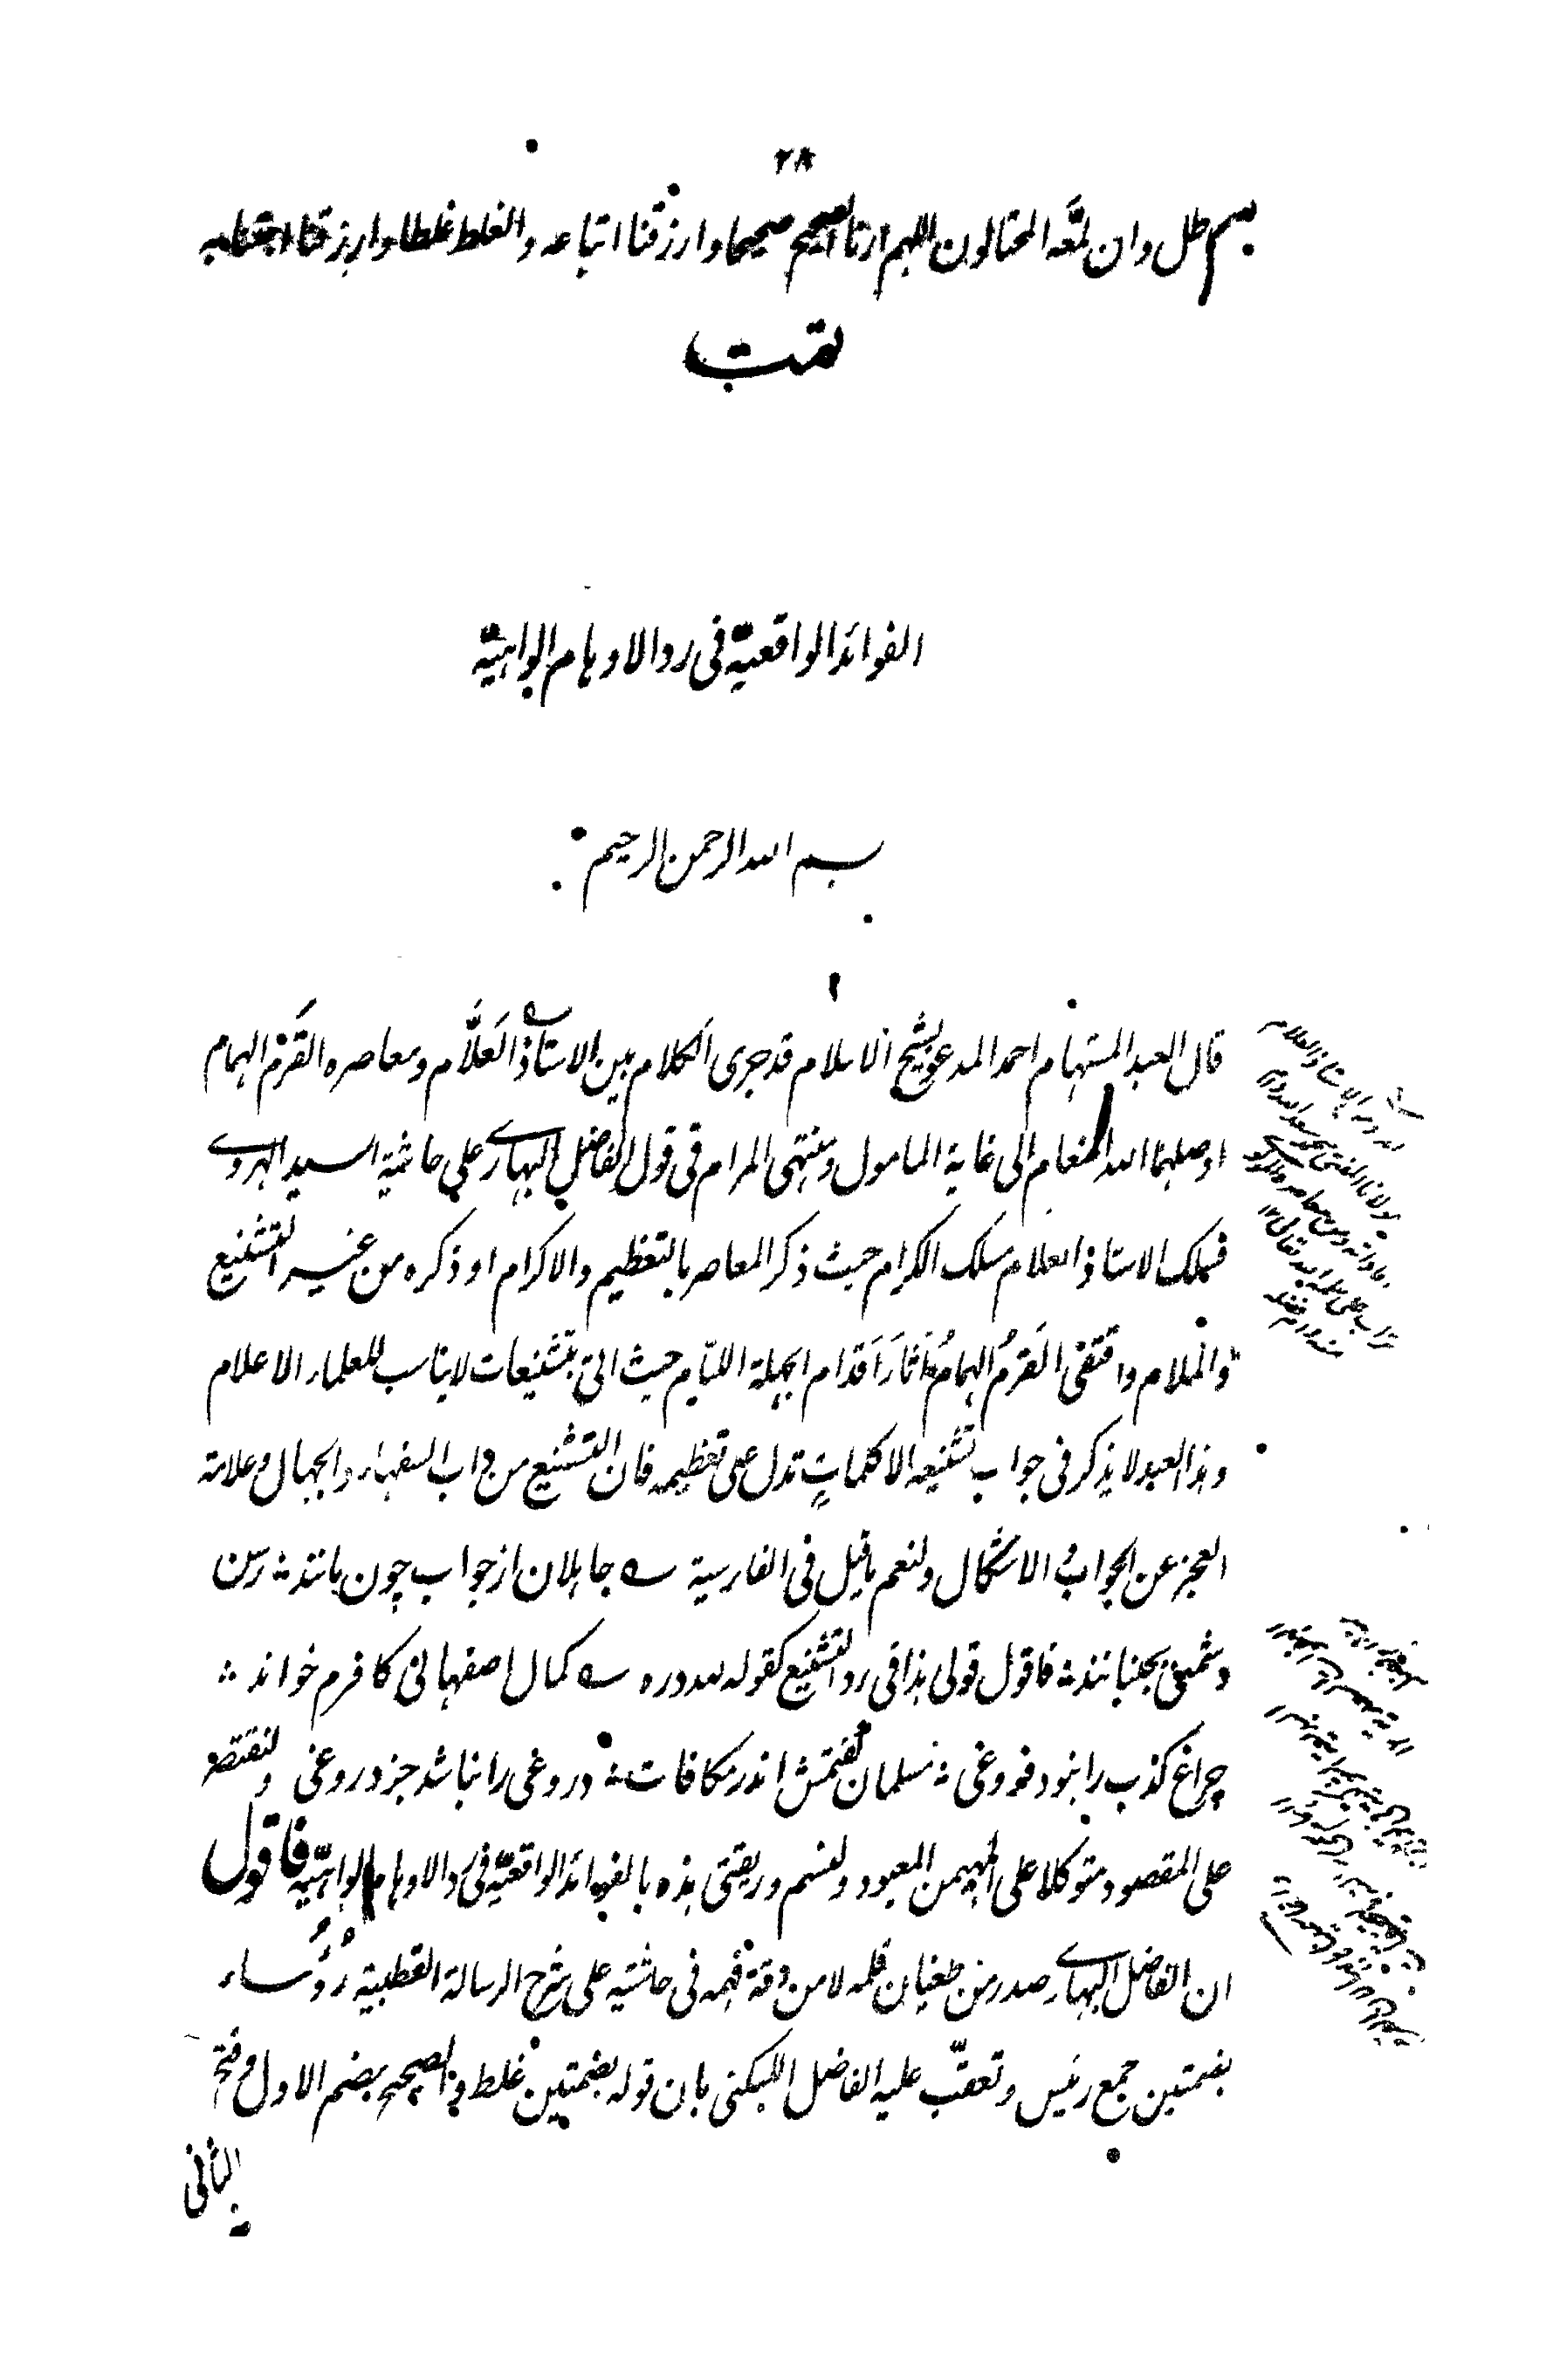 ٢٨
بهم ظل وان لمعه المحتالون اللهم ارنا الصحيح صحيحا وارزقنا اتباعه والغلط غلطا وارزقنا اجتنابه
تمت
الفوائد الواقعيّة فى رد الاوهام الواهيّة
بسم الله الرحمن الرحيم
قال العبد المستهام احمد المدعو بشيخ الاسلام قد جرى الكلام بين الاستاذ العَلَّام ومعاصره القَرْم الهمام
اوصلهما الله المنعام الى غاية المامول ومنتهى المرام فى قول الفاضل البهارى على حاشية السيد الهروى
فسلك الاستاذ العلام مسلك الكرام حيث ذكر المعاصر بالتعظيم والاكرام او ذكره من غير التشنيع
والملام واقتفى القَرْمُ الهمامُ اٰثارَ اَقدام الجهلة اللئام حيث اتى بتشنيعات لا يناسب للعلماء الاعلام
وهذا العبد لا يذكر فى جواب تشنيعه الا كلماتٍ تدل على تعظيمه فان التشنيع من داب السفهاء والجهال وعلامة
العجز عن الجواب والاشكال ولنعم ما قيل فى الفارسية ے جاهلان از جواب چون مانند ؞ رسن
دشمنى بجنبانند ؞ فاقول قولى هذا فى رد التشنيع كقوله لله دره ے كمال اصفهانى كافرم خواند ؞
چراغ كذب را نبود فروغى ؞ مسلمان گفتمش اندر مكافات ؞ دروغى را نباشد جز دروغى ولنقتصر
على المقصود متوكلا على المهيمن المعبود ولنسم وريقتى هذه بالفوائد الواقعيّة فى رد الاوهام الواهيّة فاقول
ان الفاضل البهارى صدر من طغيان قلمه لا من دقة فهمه فى حاشيته على شرح الرسالة القطبية رُؤُساء
بضمتين جمع رئيس وتعقّب عليه الفاضل اللبكنى بان قوله بضمتين غلط والصحيح بضم الاول وفتح
الثانى